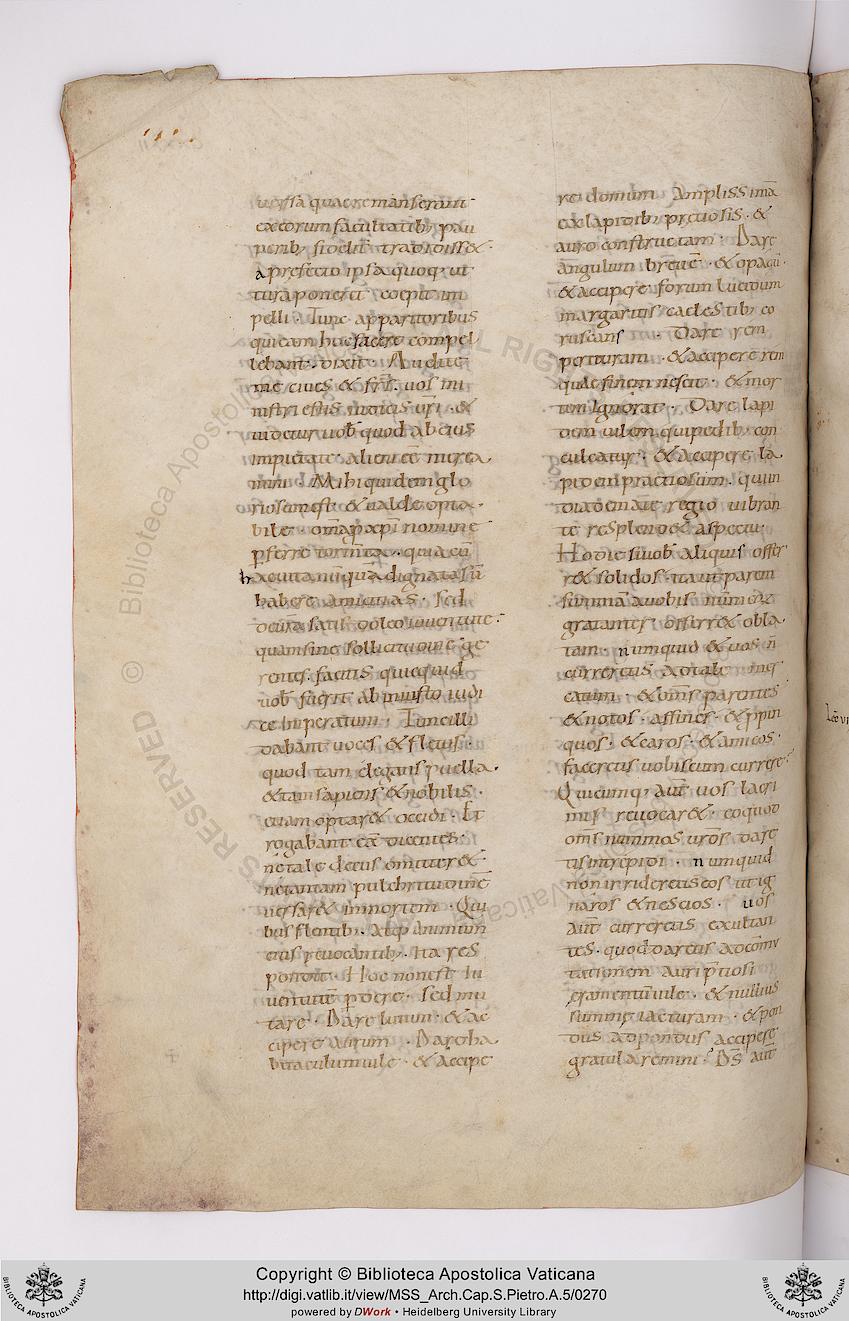 uersa quae remanserant
ex eorum facultatib; pau
perib; si o tradidiss&.
A prefecto ipsa quoq; ut
tura poneret coepit im
pelli. Tunc apparitoribus
qui eam hoc facere compel
lebant. dixit. Audite
me ciues & frs. uos mi
nistri estis iudicis uri. &
uidetur uob quod ab eius
impietate alien eē
Mihi quidem glo
riosum est & ualde opta
bile. om̄a p xp̄i nomine
p̄ferre tormta. quia eū
quā dignata sū
habere amicitias. Sed
satis doleo iuuentute.
quam sine sollicitudine ge
rentes. facitis quicquid
uob fuerit ab iniusto iudi
ce imperatum. Tunc illi
dabant uoces & fletus.
quod tam elegans puella.
& tam sapiens & nobilis.
etiam optar& occidi. Et
rogabant eā dicentes.
ne tale decus omitter&.
ne tantam pulchritudinē
uersar& in mortem. Qui
bus flentib;. atq; animum
eius reuocantib;. Ita res
pondit. Hoc non est iu
uentutē p̄dere. sed mu
tare. Dare lutum. & ac
cipere aurum. Dare ha
bitaculum uile. & accipe
re domum Amplissimā
ex lapidib; pretiosis. &
auro constructam. Dare
angulum breuē. & opacū.
& accipere forum lucidum
margaritis caelestib; co
ruscans. Dare rem
perituram. & accipere rem
quae finem nescit. & mor
tem ignorat. Dare lapi
dem uilem qui pedib; con
culcatur. & accipere la
pidem praetiosum. qui in
diademate regio uibran
te resplend& aspectu.
Hodie si uob aliquis offer
r& solidos. ita ut parem
summā a uobis
gratanter offerr& obla
tam. numquid & uos n̄
curreretis ad tale
catum. & om̄s parentes
& notos. affines. & p̄pin
quos. & caros. & amicos.
faceretis uobiscum currere.
Quicumq; aut uos lacri
mis reuocar&. eo quod
om̄s nummos uros dare
tis intrepidi. numquid
non irrideretis eos ut ig
naros & nescios. uos
aut curreretis exultan
tes. quod daretis ad com̄u
tationem auri p̄tiosi
eramentū uile. & nullius
summe iacturam. & pon
dus ad pondus accipere
gratularemini. D̄s aut